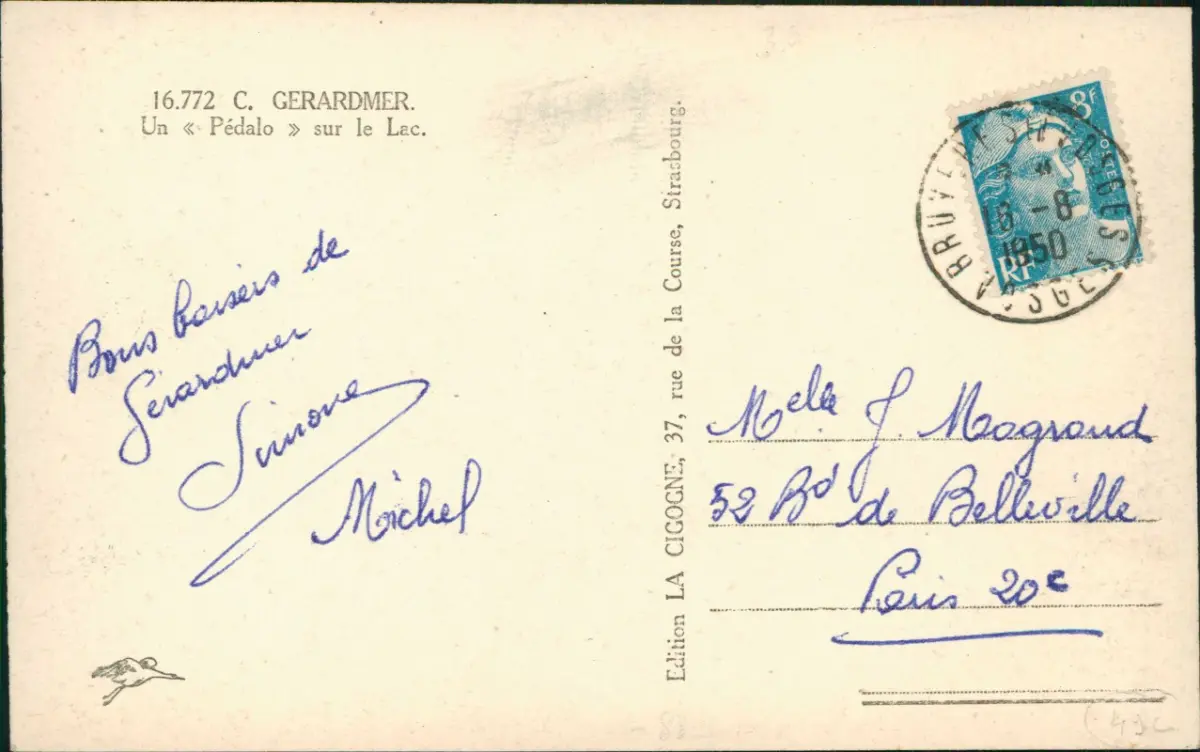 16.772 C. GERARDMER.
Un « Pédalo » sur le Lac.
Bons baisers de
Gérardmer
Simone
Michel
Edition LA CIGOGNE, 37, rue de la Course, Strasbourg.
8F
POSTES
RF
LABRUYERES VOSGES
16 -8
1950
Melle J. Magraud
52 Bd de Belleville
Paris 20e